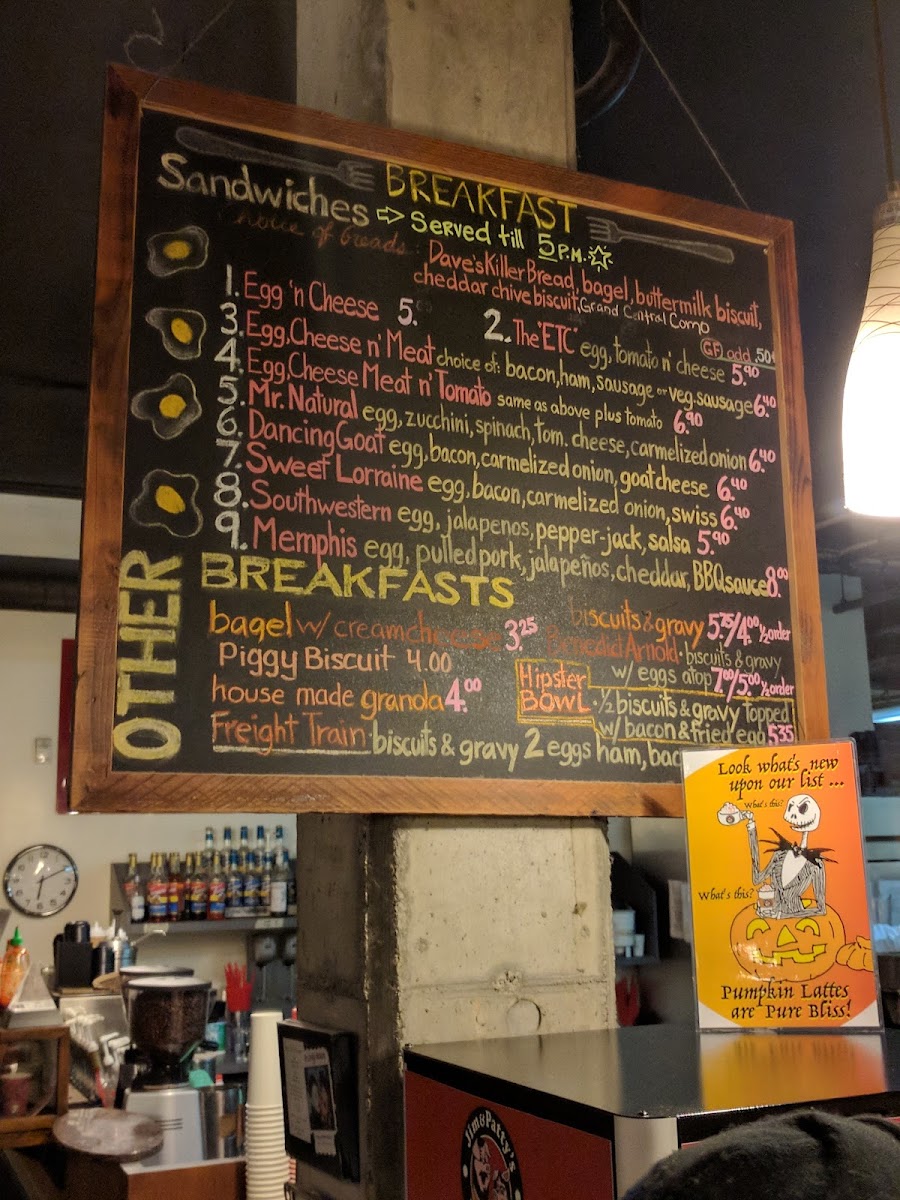 BREAKFAST
Sandwiches ⇨ Served till 5 P.M.
choice of breads: Dave's Killer Bread, bagel, buttermilk biscuit,
cheddar chive biscuit, Grand Central Como
GF add .50¢
1. Egg 'n Cheese 5.
2. The 'ETC' egg, tomato n' cheese 5.90
3. Egg, Cheese n' Meat choice of: bacon, ham, sausage or veg. sausage 6.40
4. Egg, Cheese Meat n' Tomato same as above plus tomato 6.90
5. Mr. Natural egg, zucchini, spinach, tom. cheese, carmelized onion 6.40
6. Dancing Goat egg, bacon, carmelized onion, goat cheese 6.40
7. Sweet Lorraine egg, bacon, carmelized onion, swiss 6.40
8. Southwestern egg, jalapenos, pepper-jack, salsa 5.90
9. Memphis egg, pulled pork, jalapeños, cheddar, BBQ sauce 8.00
OTHER BREAKFASTS
bagel w/ creamcheese 3.25
Piggy Biscuit 4.00
house made granola 4.00
Freight Train · biscuits & gravy 2 eggs ham,
biscuits & gravy 5.75/4.00 ½ order
Benedict Arnold · biscuits & gravy
w/ eggs atop 7.00/5.00 ½ order
Hipster BOWL · ½ biscuits & gravy topped
w/ bacon & fried egg 5.35
Look what's new
upon our list ...
What's this?
What's this?
Pumpkin Lattes
are Pure Bliss!
Jim & Patty's